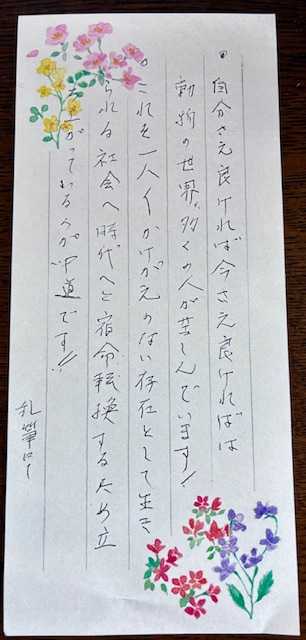 ・自分さえ良ければ今さえ良ければは
動物の世界。多くの人が苦しんでいます!!
。これを一人一人かけがえのない存在として生き
られる社会へ時代へと宿命転換するため立
上がっているのが中道です!!
乱筆にて